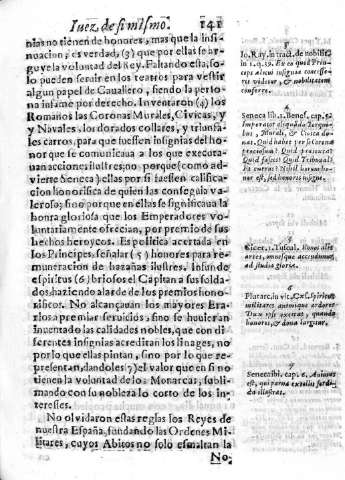 Iuez de si mismo. 141
nias no tienen de honores, mas que la insi-
nuacion, es verdad, (3) que por ellas se ar-
guye la voluntad del Rey. Faltando esta, so-
lo pueden seruir en los teatros para vestir
algun papel de Cauallero, siendo la perso-
na infame por derecho. Inuentaron (4) los
Romanos las Coronas Murales, Ciuicas, y
y Navales, los dorados collares, y triunfa-
les carros, para que fuessen insignias del ho-
nor que se comunicaua a los que executa-
uan acciones ilustres; no porque (como ad-
vierte Seneca) ellas por si fuessen califica-
cion honorifica de quien las conseguia vale-
roso; sino porque en ellas se significaua la
honra gloriosa que los Emperadores vo-
luntariamente ofrecian, por premio de sus
hechos heroycos. Es politica acertada en
los Principes, señalar (5) honores para re-
muneracion de hazañas ilustres. Infunde
espiritus (6) briosos el Capitan a sus solda-
dos, haziendo alarde de los premios hono-
rificos. No alcançauan los mayores Era-
rios a premiar seruicios, sino se huuieran
inuentado las calidades nobles, que con di-
ferentes insignias acreditan los linages, no
por lo que ellas pintan, sino por lo que re-
presentan, dandoles (7) el valor que en si no
tienen la voluntad de los Monarcas, subli-
mando con su nobleza lo corto de los in-
teresses.
No olvidaron estas reglas los Reyes de
nuestra España, fundando las Ordenes Mi-
litares, cuyos Abitos no solo esmaltan la
No-
3
Io. Ray. in tract. de nobilit.
Ex eo quod Prin-
ceps alicui insignia concesse-
rit videtur, & nobilitatem
conferre.
4
Seneca lib. 1. Benef. cap. 5.
Imperator aliquando Torqui-
bus, Murali, & Ciuica do-
nat. Quid habet per se Corona
pretiosum? Quid praetexta?
Quid fasces? Quid Tribunal?
Et currus? Nihil horum ho-
nor est, sed honoris insigne.
5
Cicer. 1. Tuscul. Honos alit
artes, omnesque accenduntur
ad studia gloria.
6
Plutarc. in vit. Spiritus
militares animique ardorem
Dux ipse excitat, quando
honores, & dona largitur.
7
Seneca cap. 6. Animus
est, qui parua extollit sordi-
da illustrat.